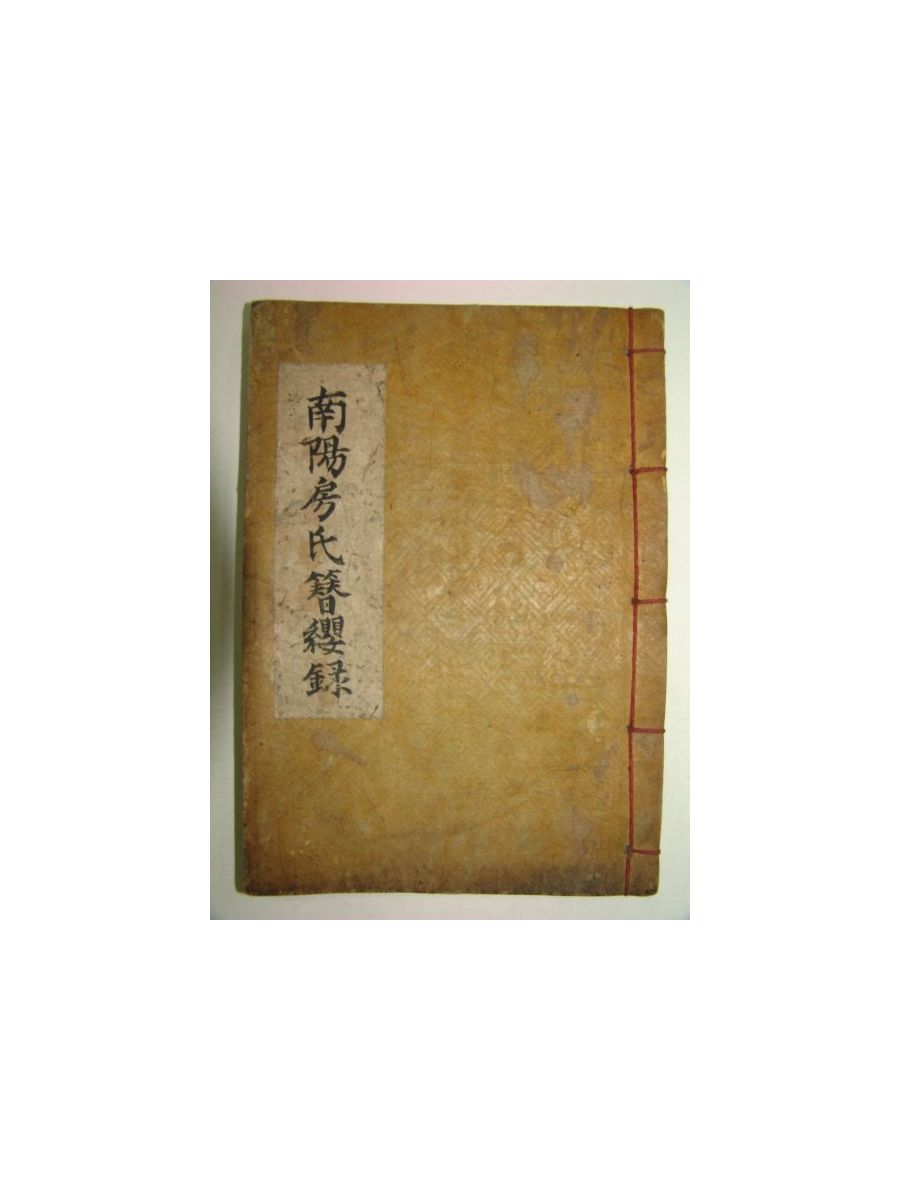 南陽房氏簪纓録